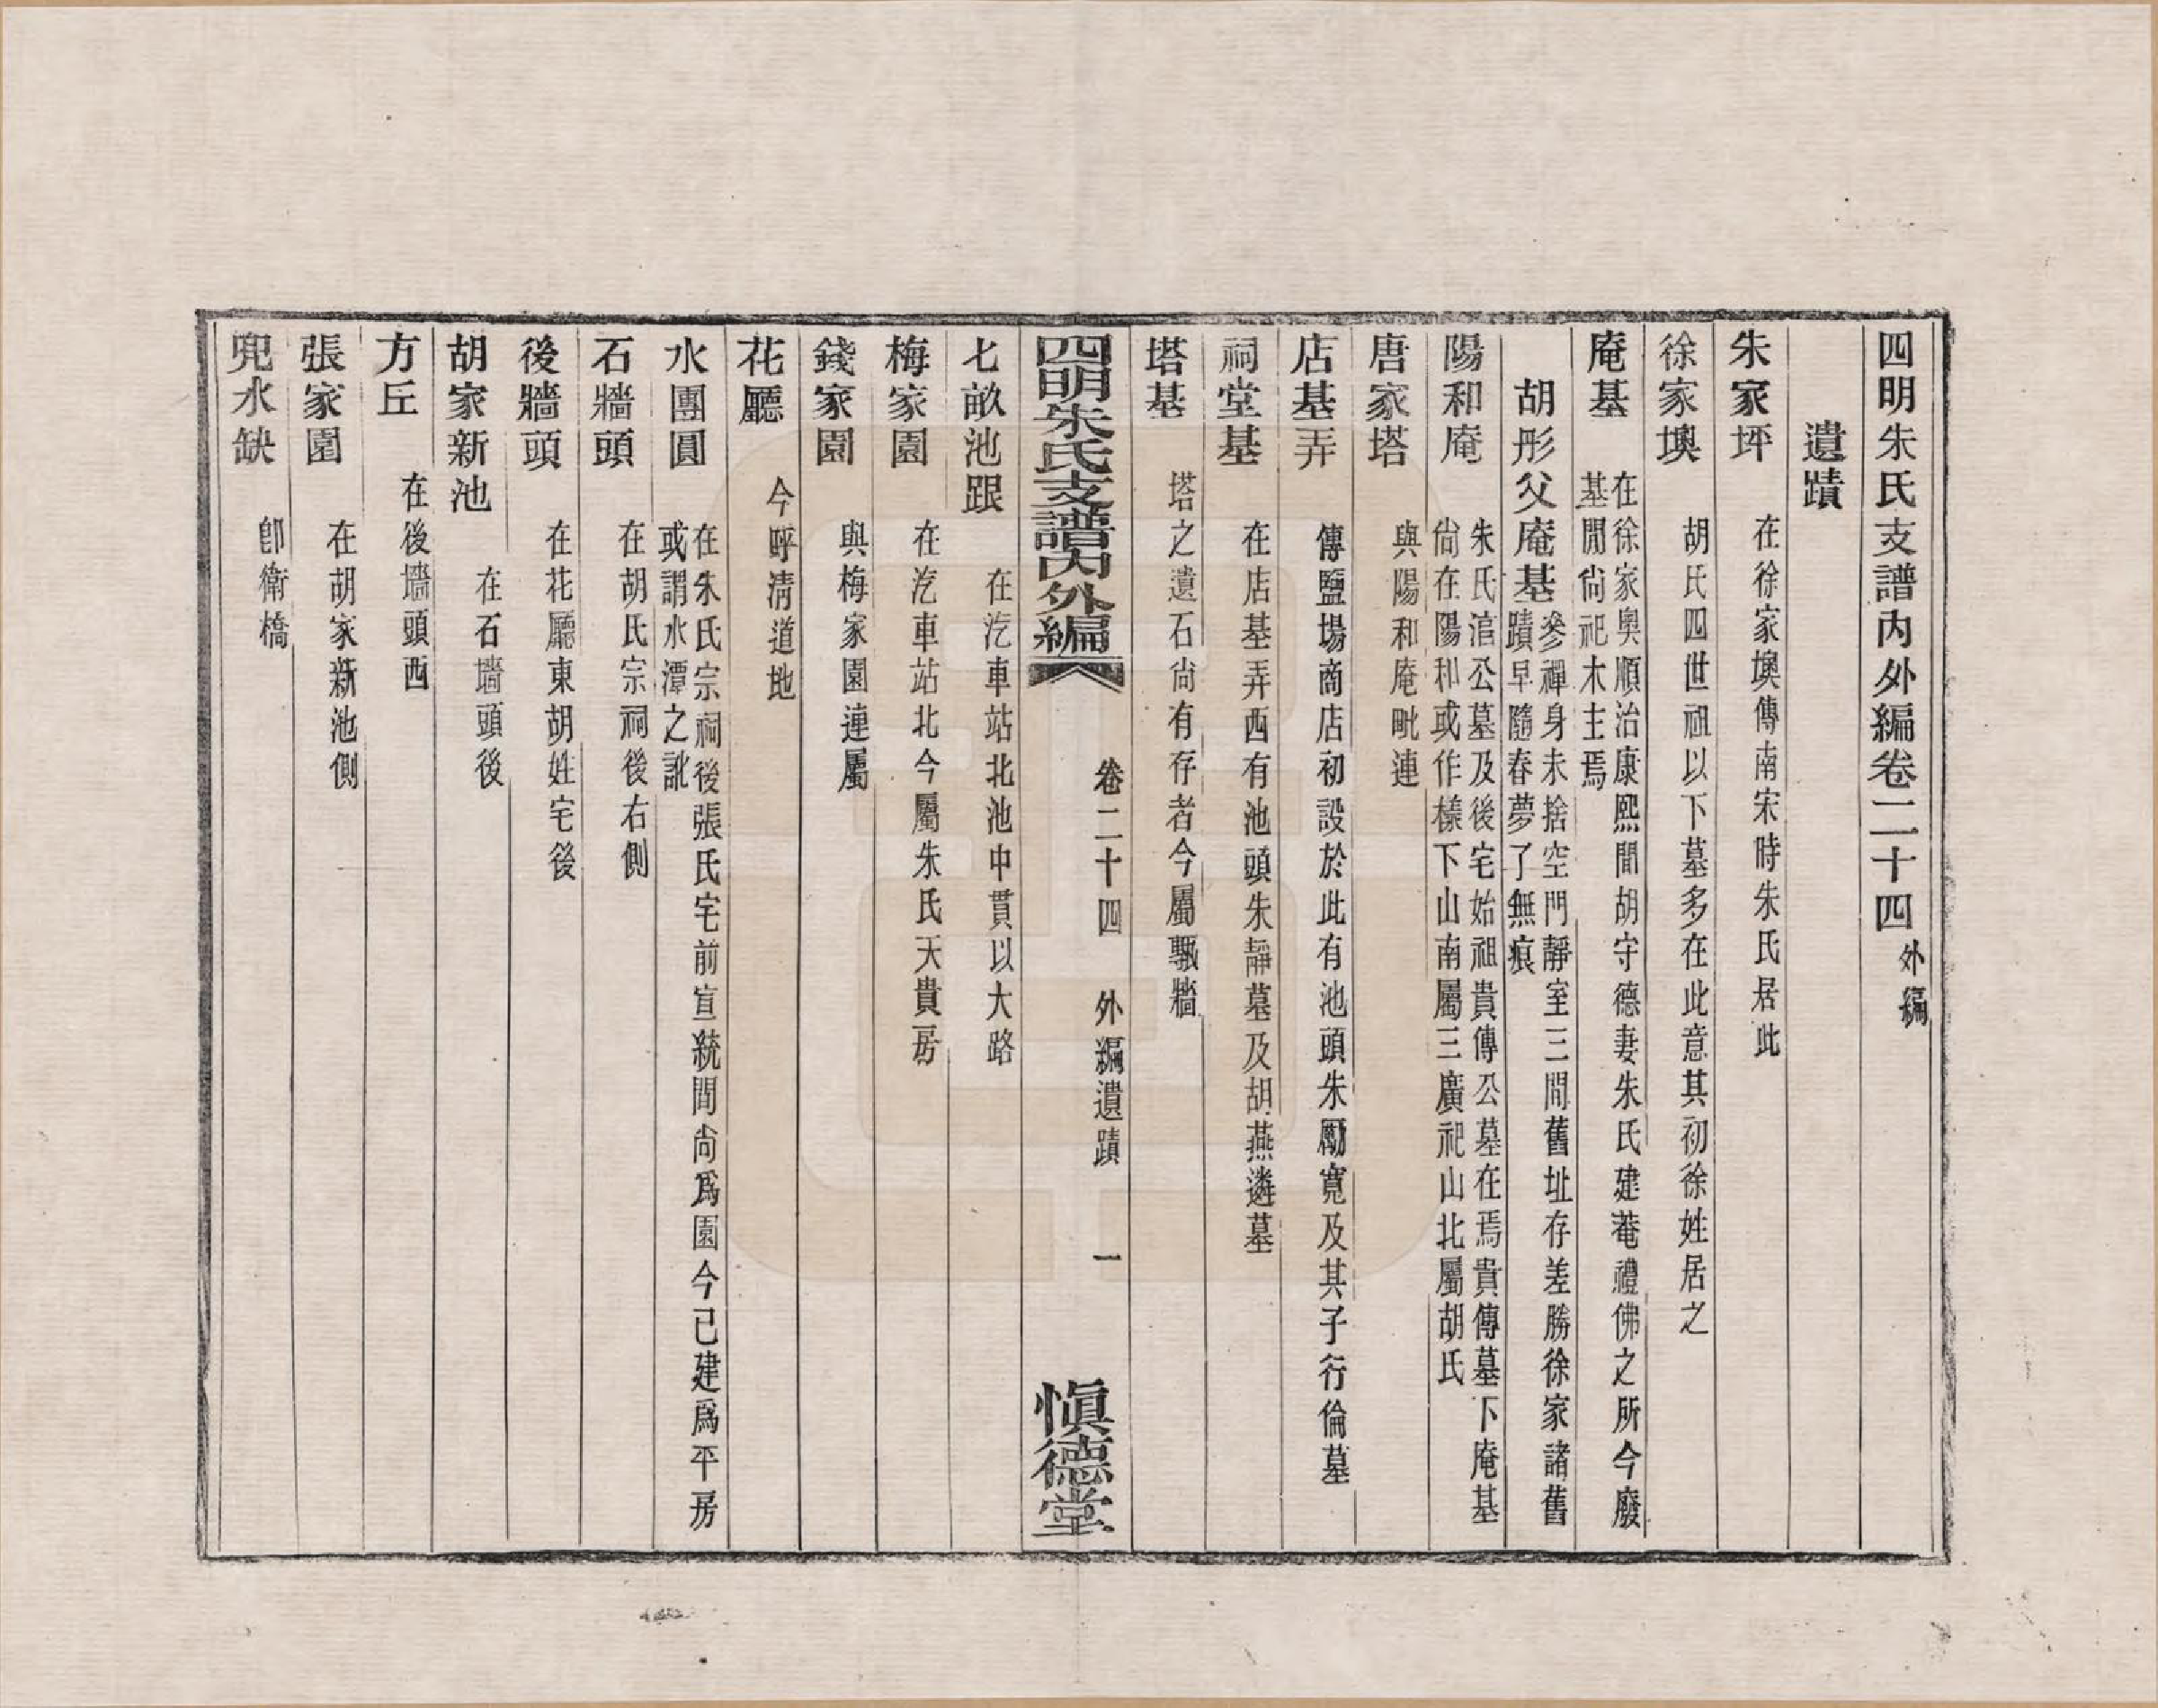 四明朱氏支譜內外編卷二十四 外編
遺蹟
朱家坪 在徐家墺傳南宋時朱氏居此
徐家墺 胡氏四世祖以下墓多在此意其初徐姓居之
庵基 在徐家奧順治康熙間胡守德妻朱氏建菴禮佛之所今廢
基閒尙祀木主焉
胡彤父庵基 參禪身未捨空門靜室三間舊址存差勝徐家諸舊
蹟早隨春夢了無痕
陽和庵 朱氏涫公墓及後宅始祖貴傳公墓在焉貴傳墓下庵基
尙在陽和或作樣下山南屬三廣祀山北屬胡氏
唐家塔 與陽和庵毗連
店基弄 傳鹽場商店初設於此有池頭朱勵寬及其子行倫墓
祠堂基 在店基弄西有池頭朱靜墓及胡燕遴墓
塔基 塔之遺石尙有存者今屬驅牆
四明朱氏支譜內外編 卷二十四 外編遺蹟 一 愼德堂
七畝池跟 在汽車站北池中貫以大路
梅家園 在汽車站北今屬朱氏天貴房
錢家園 與梅家園連屬
花廳 今呼淸道地
水團圓 在朱氏宗祠後張氏宅前宣統間尙爲園今已建爲平房
或謂水潭之訛
石牆頭 在胡氏宗祠後右側
後牆頭 在花廳東胡姓宅後
胡家新池 在石墻頭後
方丘 在後墻頭西
張家園 在胡家新池側
兜水缺 卽衛橋